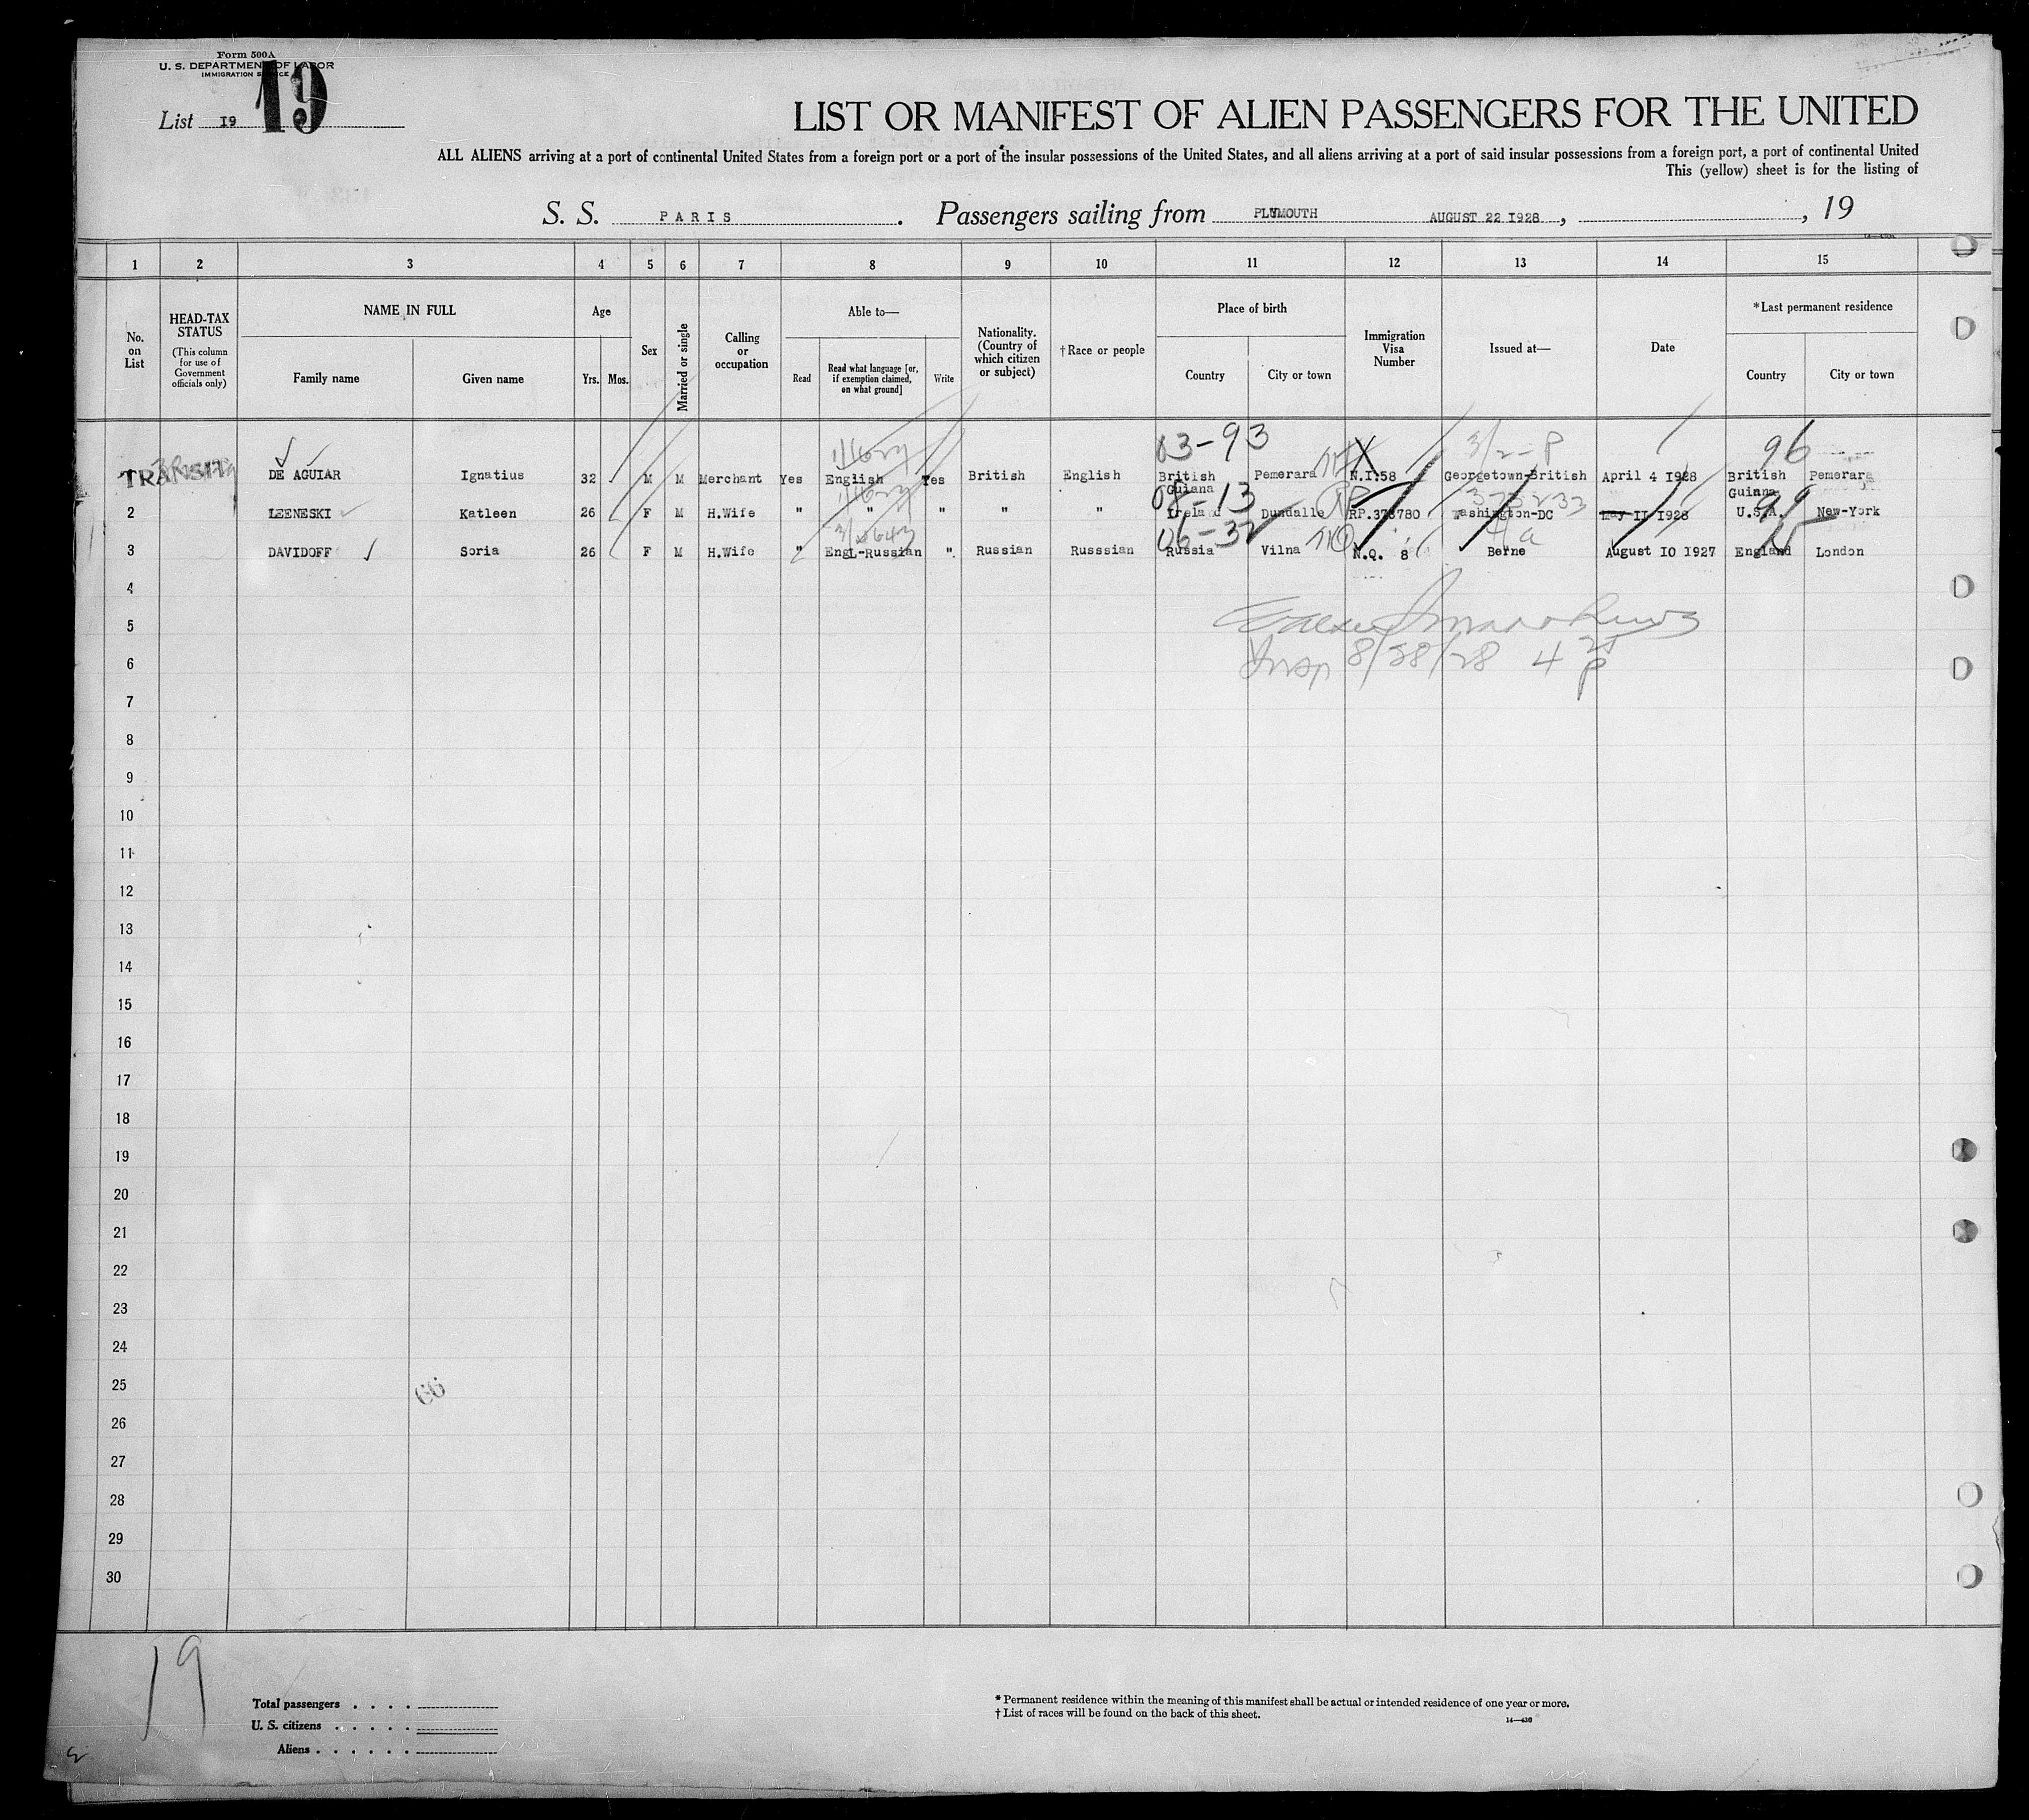 Form 500A
U. S. DEPARTMENT OF LABOR
IMMIGRATION SERVICE
19
List 19
LIST OR MANIFEST OF ALIEN PASSENGERS FOR THE UNITED
ALL ALIENS arriving at a port of continental United States from a foreign port or a port of the insular possessions of the United States, and all aliens arriving at a port of said insular possessions from a foreign port, a port of continental United
This (yellow) sheet is for the listing of
S. S. PARIS. Passengers sailing from PLYMOUTH AUGUST 22 1928, , 19
1 2 3 4 5 6 7 8 9 10 11 12 13 14 15
No. on List
HEAD-TAX STATUS
(This column for use of Government officials only)
NAME IN FULL
Family name Given name
Age
Yrs. Mos.
Sex
Married or single
Calling or occupation
Able to—
Read
Read what language [or, if exemption claimed, on what ground]
Write
Nationality. (Country of which citizen or subject)
†Race or people
Place of birth
Country City or town
Immigration Visa Number
Issued at—
Date
*Last permanent residence
Country City or town
03-93 3/2-P 96
TRANSIT DE AGUIAR Ignatius 32 M M Merchant Yes English Yes British English British Guiana Pemerara N.I.58 Georgetown-British April 4 1928 British Guinna Pemerara
08-13 99
2 LEENESKI Katleen 26 F M H.Wife " " " " " Ireland Dundalle RP.373780 Washington-DC May II 1928 U.S.A. New-York
06-32
3 DAVIDOFF Soria 26 F M H.Wife " Engl-Russian " Russian Russsian Russia Vilna N.Q. 8 Berne August 10 1927 England London
4
5
6
Insp 8/28/28 4 25 P
7
8
9
10
11
12
13
14
15
16
17
18
19
20
21
22
23
24
25
66
26
27
28
29
30
19
Total passengers . . . .
U. S. citizens . . . . .
Aliens . . . . . .
* Permanent residence within the meaning of this manifest shall be actual or intended residence of one year or more.
† List of races will be found on the back of this sheet.
14—430